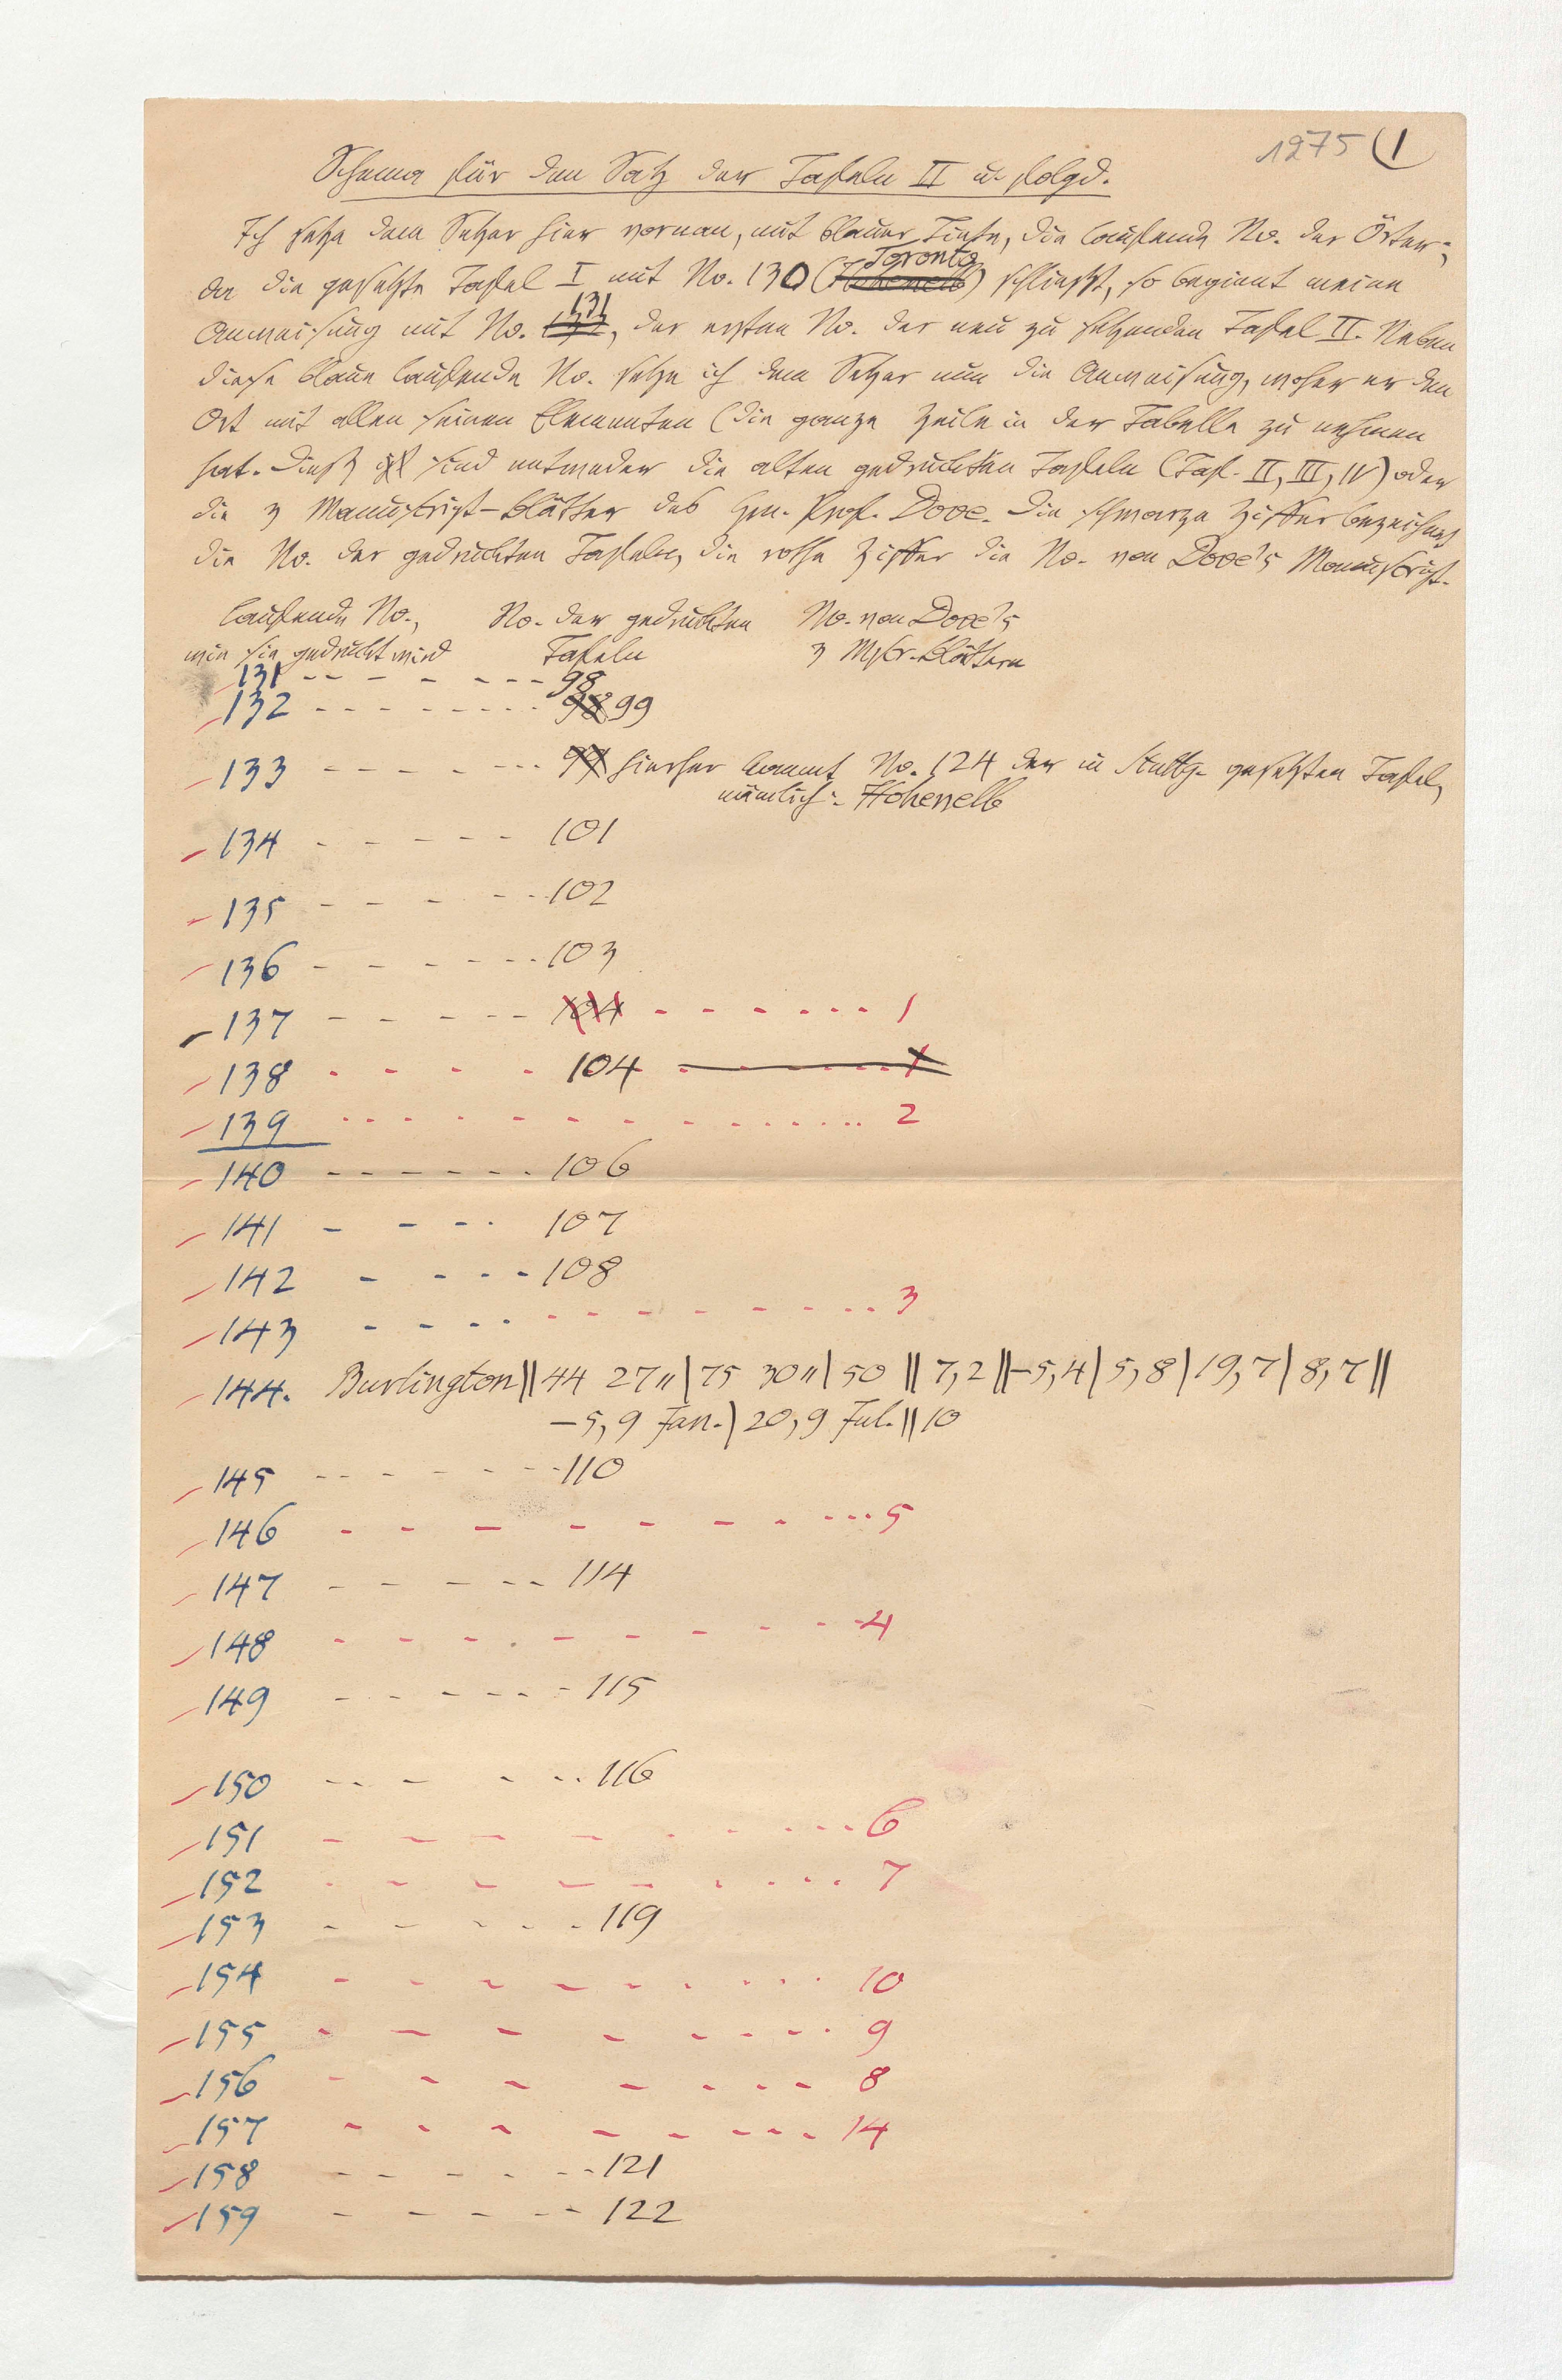 1275 (1
Schema für den Satz der Tafeln II u. folgd.
Ich setze dem Setzer hier vornan, mit blauer Tinte, die laufende No. der Örter;
da die gesetzte Tafel I mit No. 130 (Hohenelb Toronto) schließt, so beginnt meine
Anweisung mit No. 131, der ersten No. der neu zu setzenden Tafel II. Neben
diese blaue laufende No. setze ich dem Setzer nun die Anweisung, woher er den
Ort mit allen seinen Elementen (die ganze Zeile in der Tabelle zu nehmen
hat. Dieß sind entweder die alten gedruckten Tafeln (Taf. II, III, IV) oder
die 3 Manuskript-Blätter des Hrn. Prof. Dove. Die schwarze Ziffer bezeichnet
die No. der gedruckten Tafeln, die rothe Ziffer die No. von Dove's Manuskript.
laufende No., No. der gedruckten No. von Dove's
wie sie gedruckt wird Tafeln 3 Mskr.-Blättern
131 - - - - - - - 98
132 - - - - - - - - 98 99
133 - - - - - - - 99 hierher kommt No. 124 der in Stuttg. gesetzten Tafel,
nämlich: Hohenelb
134 - - - - - - 101
135 - - - - - 102
136 - - - - - - 103
137 - - - - - 104 - - - - - - 1
138 - - - - 104 - - - - - 1
139 - - - - - - - - - - - - - 2
140 - - - - - - - 106
141 - - - - · 107
142 - - - - - 108
143 - - - - - - - - - - - - - 3
144. Burlington || 44 27 " | 75 30 " | 50 || 7,2 || -5,4 | 5,8 | 19,7 | 8,7 ||
-5,9 Jan. | 20,9 Jul. || 10
145 - - - - - - - - 110
146 - - - - - - - - - - - 5
147 - - - - - 114
148 - - - - - - - - - - 4
149 - - - - - - - 115
150 - - - - - - 116
151 - - - - - - - - - - 6
152 - - - - - - - - - - 7
153 - - - - - - 119
154 - - - - - - - - - - 10
155 - - - - - - - - - 9
156 - - - - - - - - 8
157 - - - - - - - - - 14
158 - - - - - - - 121
159 - - - - - - 122